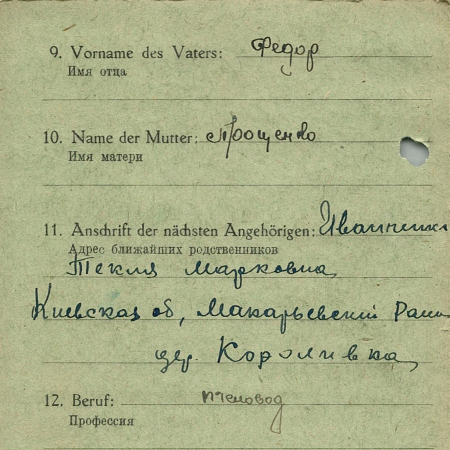 9. Vorname des Vaters: Федор
Имя отца
10. Name der Mutter: Прощенко
Имя матери
11. Anschrift der nächsten Angehörigen: Иванненко
Адрес ближайших родственников
Текля Марковна
Киевская об, Макарьевский Раион
дер. Короливка
12. Beruf: пчеловод
Профессия